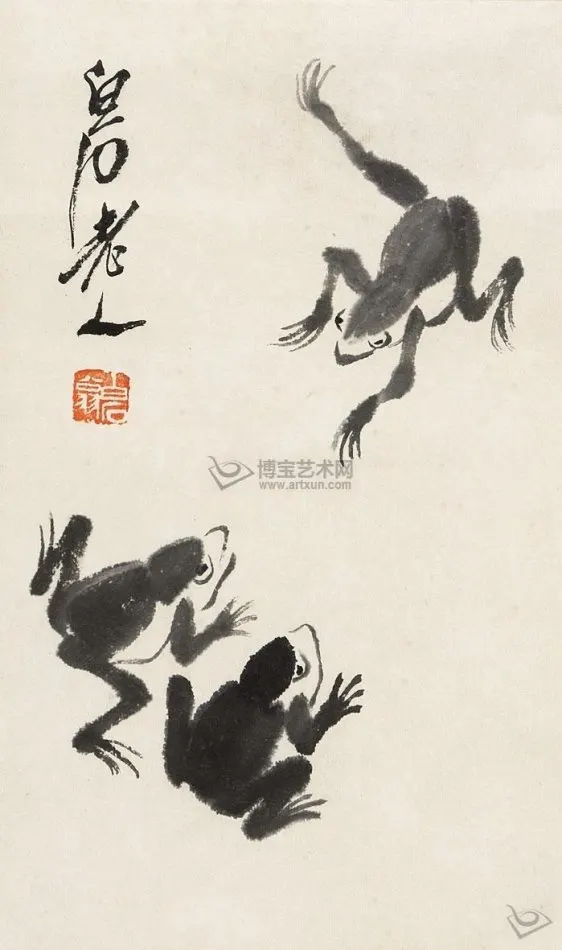 白石老人
白石翁
博宝艺术网
www.artxun.com